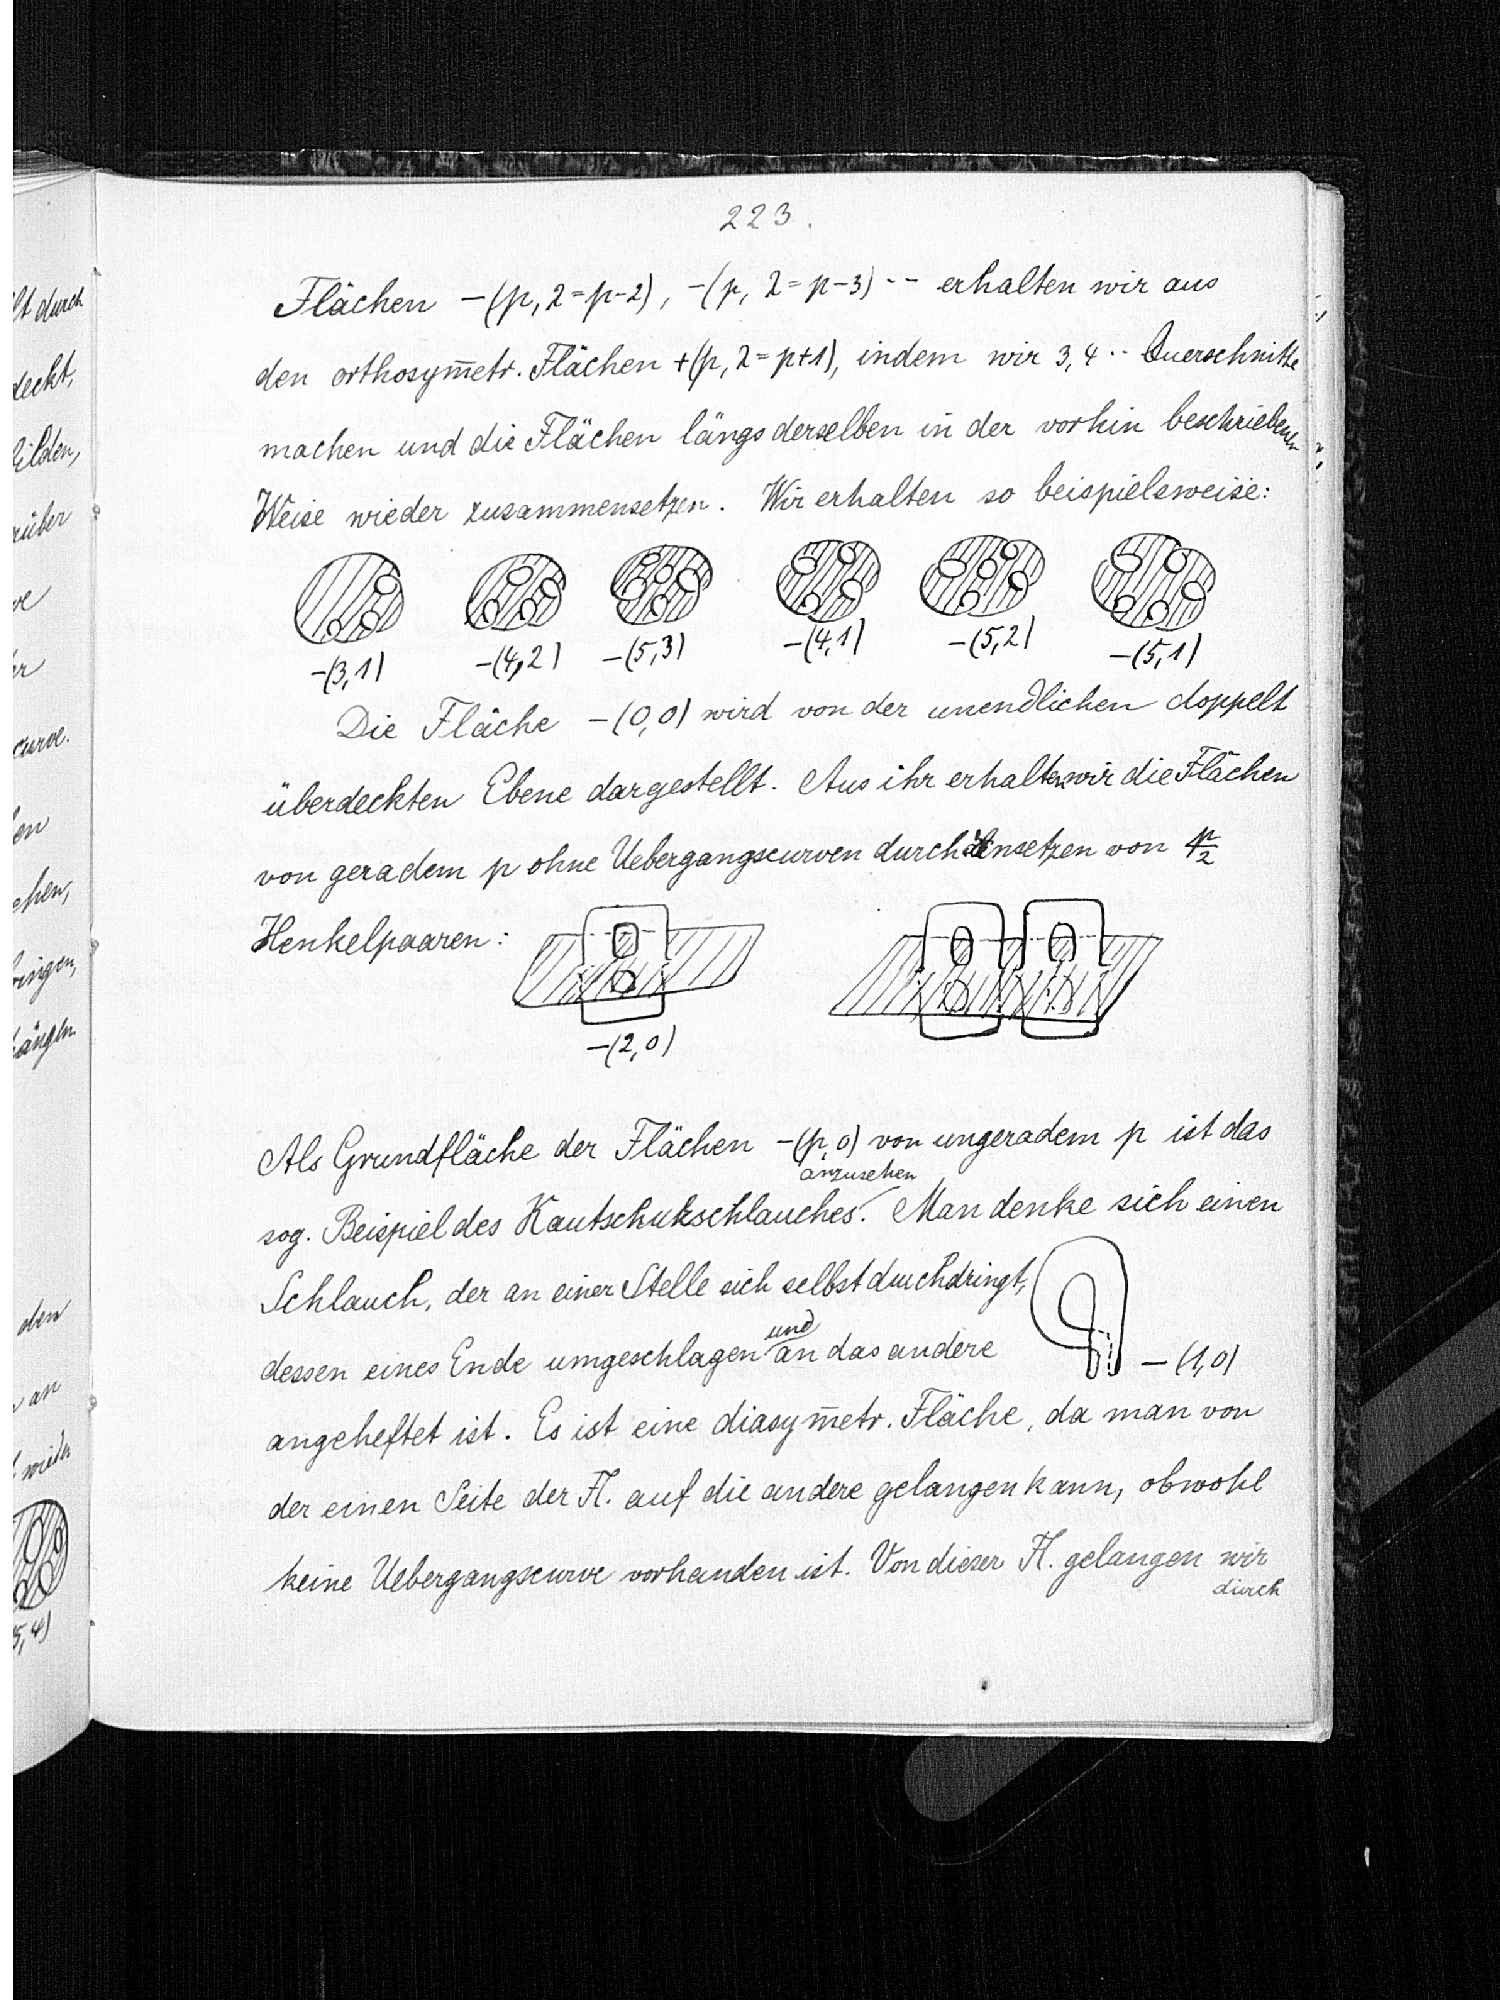 223.
Flächen -(p, λ=p-2), -(p, λ=p-3) -- erhalten wir aus
den orthosym̅etr. Flächen +(p, λ=p+1), indem wir 3,4 ·· Querschnitte
machen und die Flächen längs derselben in der vorhin beschriebenen
Weise wieder zusammensetzen. Wir erhalten so beispielsweise:
-(3,1) -(4,2) -(5,3) -(4,1) -(5,2) -(5,1)
Die Fläche -(0,0) wird von der unendlichen doppelt
überdeckten Ebene dargestellt. Aus ihr erhalten wir die Flächen
von geradem p ohne Uebergangscurven durch Ansetzen von p/2
Henkelpaaren:
-(2,0)
Als Grundfläche der Flächen -(p,0) von ungeradem p ist das
anzusehen
sog. Beispiel des Kautschukschlauches. Man denke sich einen
Schlauch, der an einer Stelle sich selbst durchdringt,
und
dessen eines Ende umgeschlagen an das andere
-(1,0)
angeheftet ist. Es ist eine diasym̅etr. Fläche, da man von
der einen Seite der Fl. auf die andere gelangen kann, obwohl
keine Uebergangscurve vorhanden ist. Von dieser Fl. gelangen wir
durch